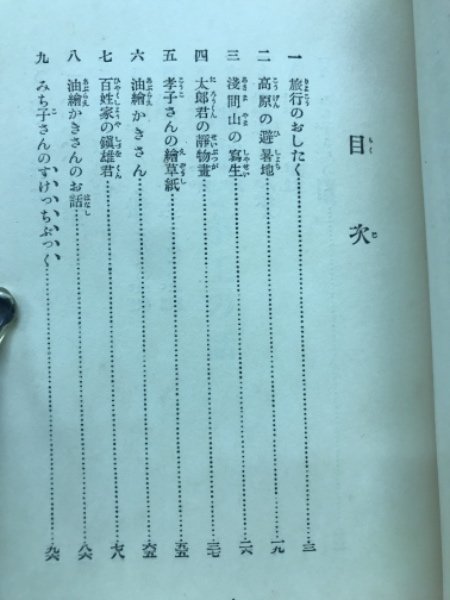 目次
一 旅行のおしたく 三
二 高原の避暑地 一九
三 淺間山の寫生 二六
四 太郎君の靜物畫 三七
五 孝子さんの繪草紙 五五
六 油繪かきさん 六五
七 百姓家の鎭雄君 七八
八 油繪かきさんのお話 八六
九 みち子さんのすけっちぶっく 九六